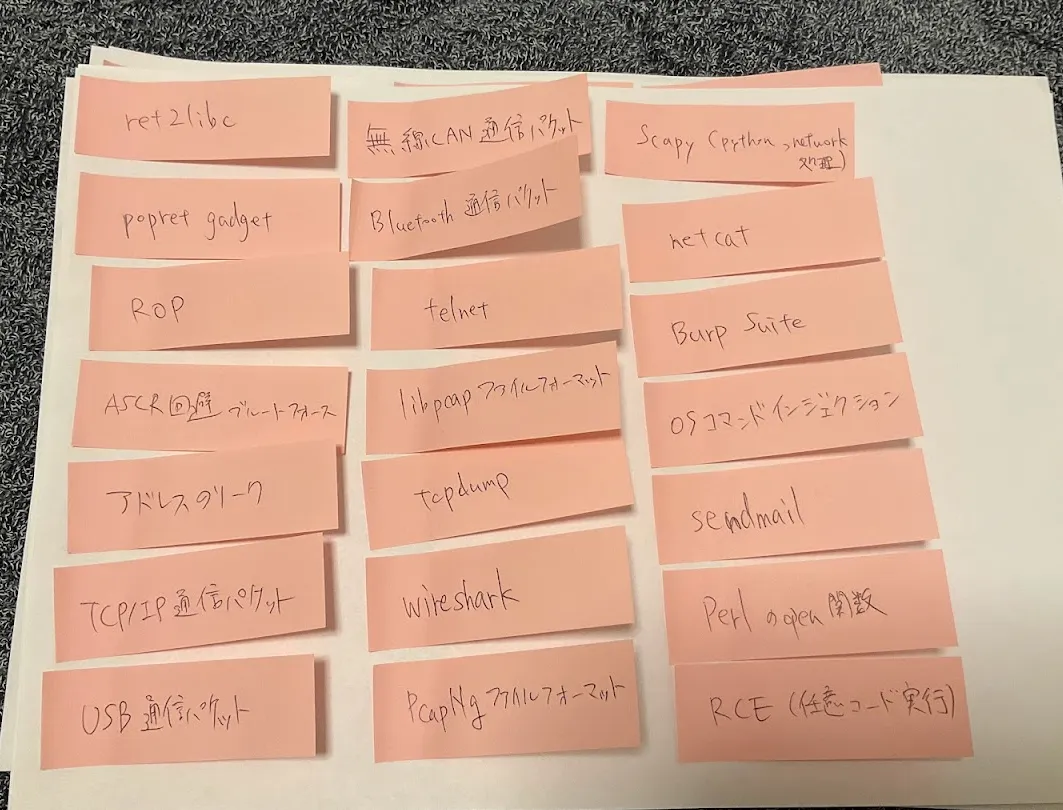 ret2libc
popret gadget
ROP
ASCR回避 ブルートフォース
アドレスのリーク
TCP/IP 通信パケット
USB 通信パケット
無線CAN通信パケット
Bluetooth 通信パケット
telnet
libpcap ファイルフォーマット
tcpdump
wireshark
PcapNg ファイルフォーマット
Scapy (python,network
処理)
netcat
Burp Suite
OSコマンドインジェクション
sendmail
Perl のopen 関数
RCE (任意コード実行)